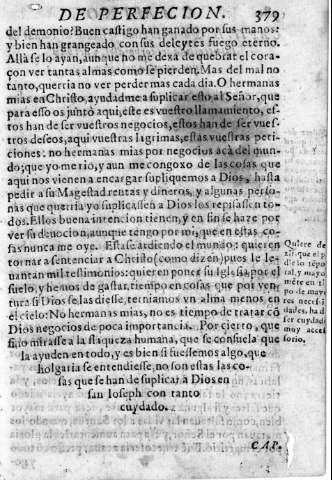 DE PERFECION. 379
del demonio? Buen castigo han ganado por sus manos:
y bien han grangeado con sus deleytes fuego eterno.
Allà se lo ayan, aunque no me dexa de quebrar el cora-
çon ver tantas almas como se pierden. Mas del mal no
tanto, querria no ver perder mas cada dia. O hermanas
mias en Christo, ayudadme a suplicar esto al Señor, que
para esso os juntò aqui, este es vuestro llamamiento, es-
tos han de ser vuestros negocios, estos han de ser vues-
tros deseos, aqui vuestras lagrimas, estas vuestras peti-
ciones: no hermanas mias por negocios acà del mun-
do; que yo me rio, y aun me congoxo de las cosas que
aqui nos vienen a encargar supliquemos a Dios, hasta
pedir a su Magestad rentas y dineros, y algunas perso-
nas que querria yo suplicassen a Dios los repisassen to-
dos. Ellos buena intencion tienen, y en fin se haze por
ver su deuocion, aunque tengo por mi, que en estas co-
sas nunca me oye. Estase ardiendo el mundo: quieren
tornar a sentenciar a Christo (como dizen) pues le le-
uantan mil testimonios: quieren poner su Iglesia por el
suelo, y hemos de gastar tiempo en cosas que por ven-
tura si Dios se las diesse, terniamos vn alma menos en
el cielo: No hermanas mias, no es tiempo de tratar cõ
Dios negocios de poca importancia. Por cierto, que
si no mirasse a la flaqueza humana, que se consuela que
la ayuden en todo, y es bien si fuessemos algo, que
holgaria se entendiesse, no son estas las co-
sas que se han de suplicar à Dios en
san Ioseph con tanto
cuydado.
Quiere de
zir que el p
dir lo tẽpo
ral, y mayor
mẽte en tiẽ
po de mayo
res necessi
dades, ha d
ser cuydad
muy acces
sorio.
CAP.